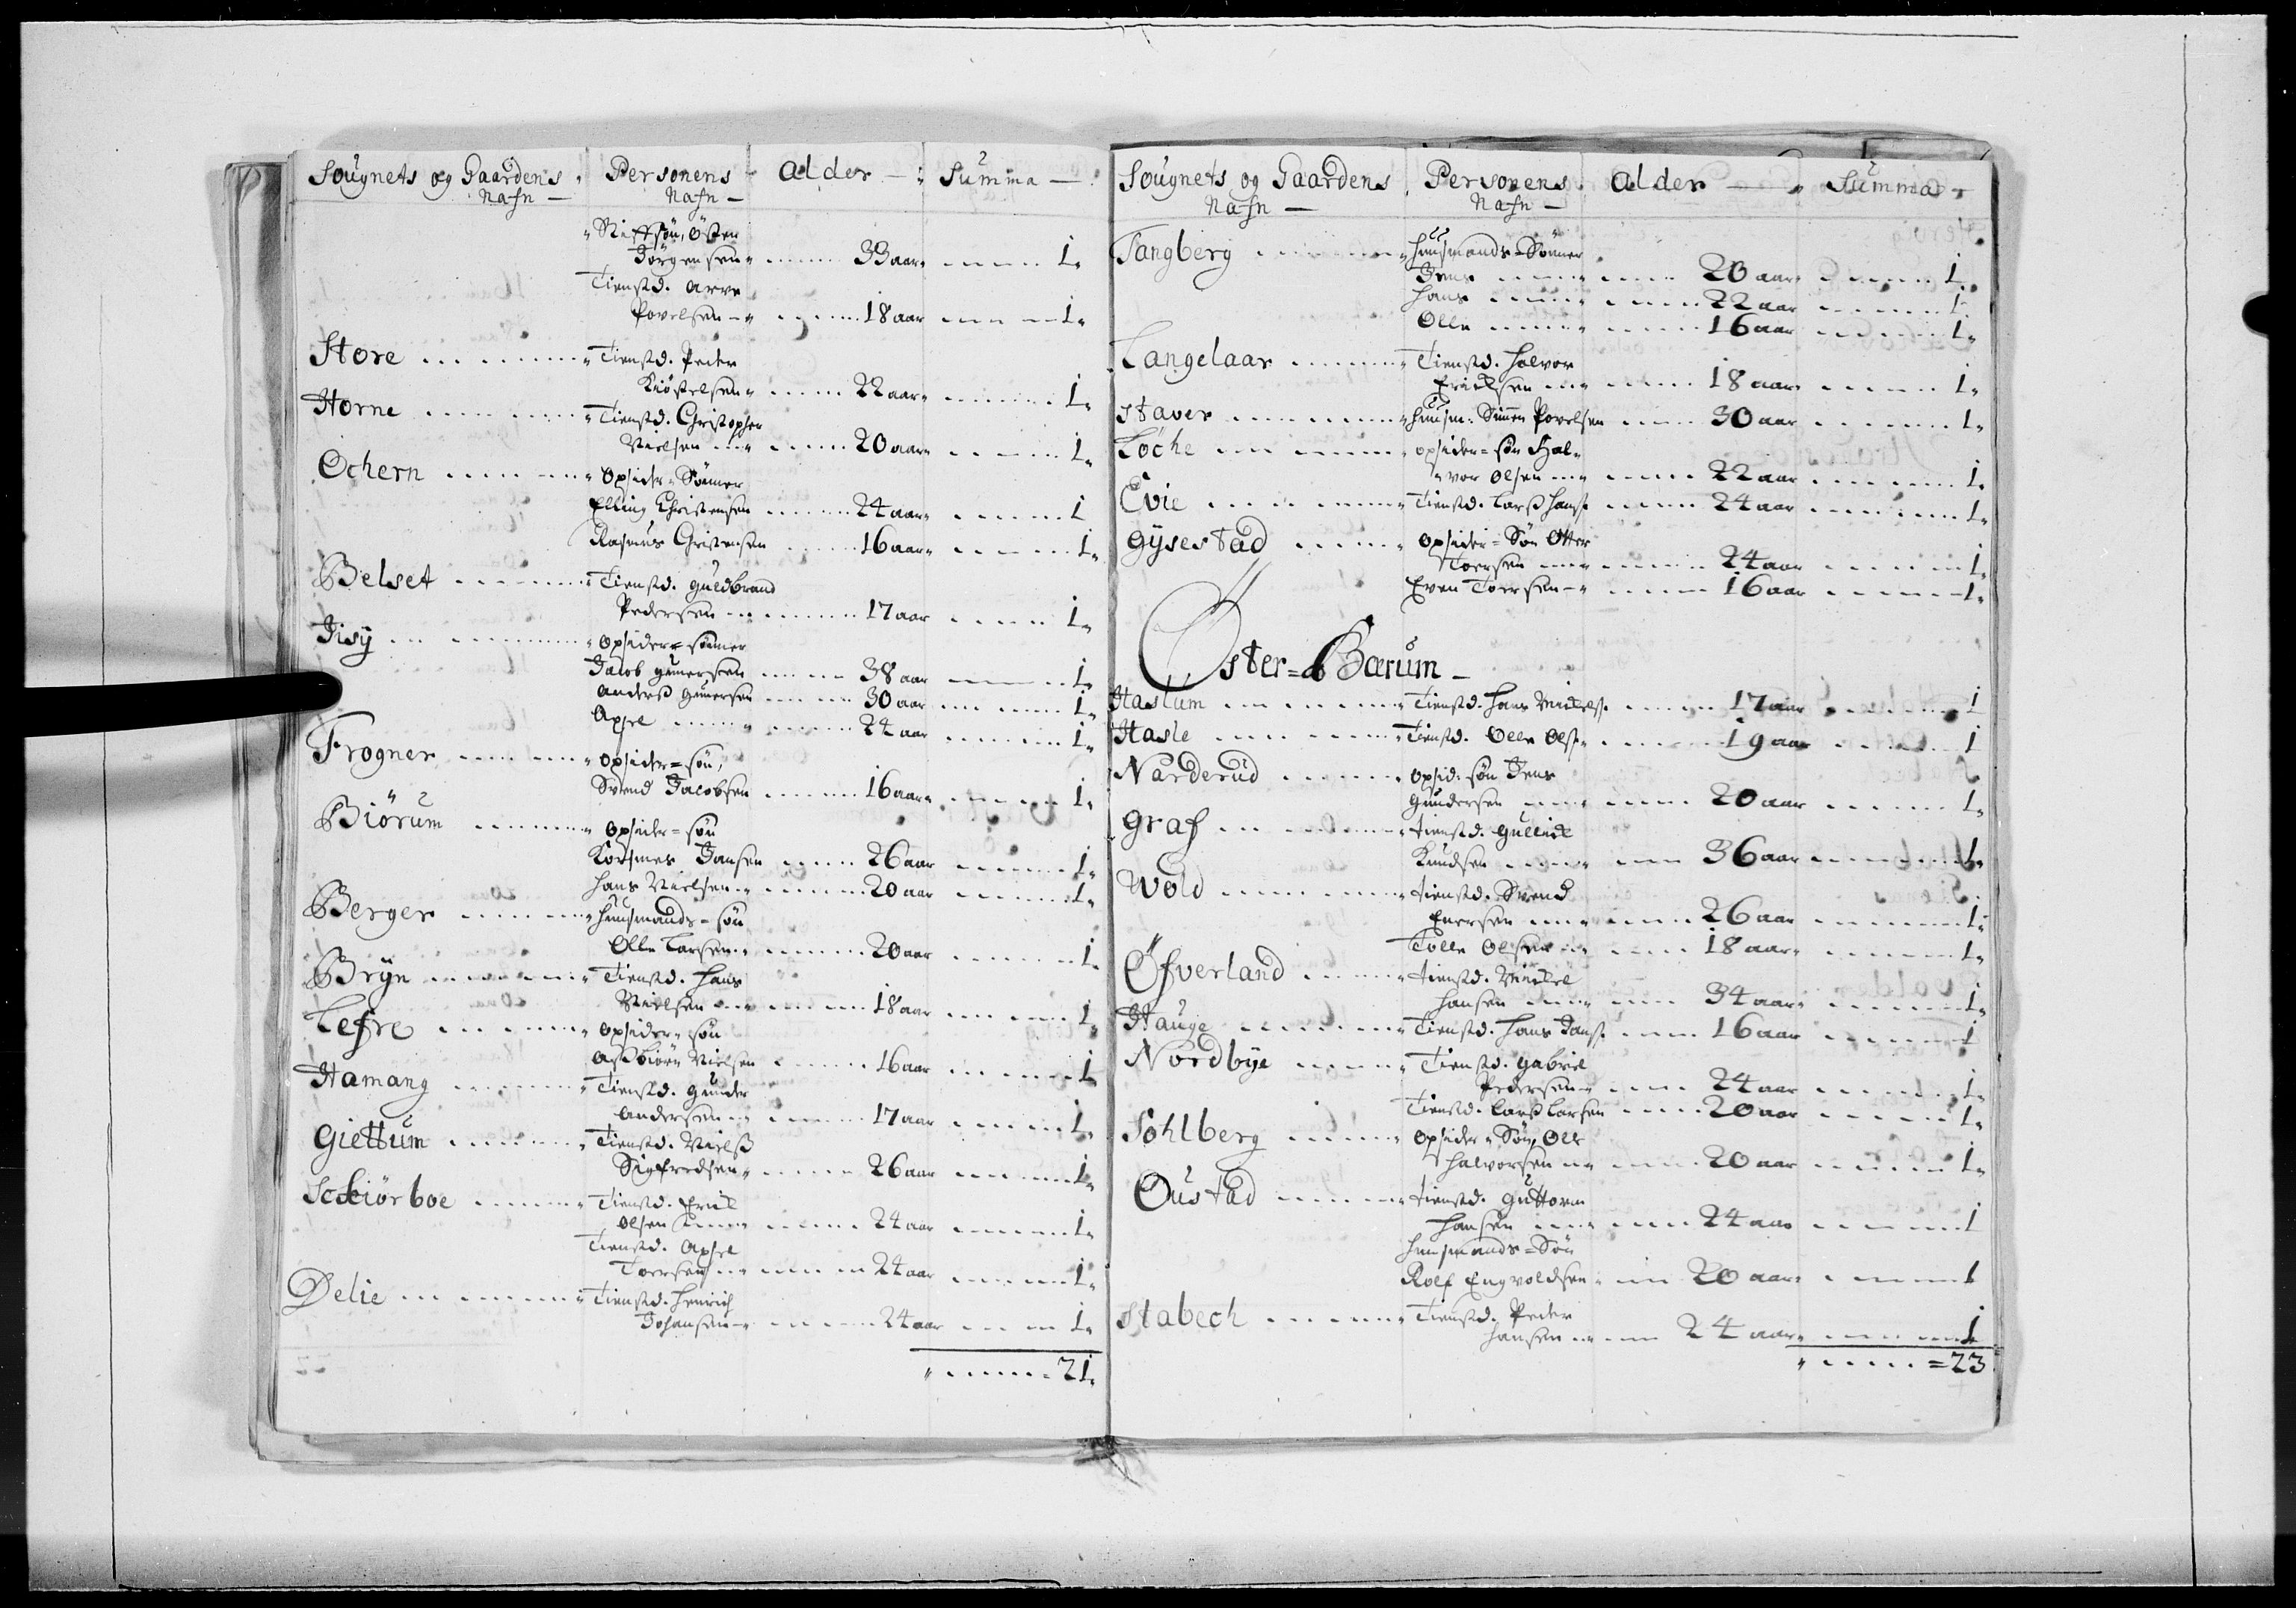 Sougnets og Gaardens
Nafn —
Personens
Nafn —
Alder —
Summa —
Stiffsøn, Østen
Jörgensen 33 aar 1
Tienestd. Arve
Povelsen 18 aar 1
Store Tienestd. Peder
Kiöstelsen 22 aar 1
Horne Tienestd. Christopher
Nielsen 20 aar 1
Ochern Opsider-Sönner
Elling Christensen 24 aar 1
Rasmus Christensen 16 aar 1
Belset Tienestd. Guldbrand
Pedersen 17 aar 1
Jisy Opsider-sönner
Jacob Gunersen 38 aar 1
Anders Gunersen 30 aar 1
Axsel 24 aar 1
Frogner Opsider-søn,
Svend Jacobsen 16 aar 1
Biörum Opsider-søn
Jansen 26 aar 1
Hans Nielsen 20 aar 1
Berger Huusmands-søn
Olle Larsen 20 aar 1
Bryn Tienestd. Hans
Nielsen 18 aar 1
Lefre Opsider søn
Asbiörn Nielsen 16 aar 1
Hamang Tienestd. Gunder
Andersen 17 aar 1
Giettum Tienestd. Nielss
Sigfredsen 26 aar 1
Sckiörboe Tienestd. Erick
Olsen 24 aar 1
Tienestd. Axsel
Toersen 24 aar 1
Delie Tienestd. Henrich
Johansen 24 aar 1
21
Sougnets og Gaardens
Nafn —
Personens
Nafn —
Alder —
Summa
Tangberg Huusmands-Sönner
Jens 20 aar 1
Hans 22 aar 1
Olle 16 aar 1
Langelaar Tienestd. Halvor
Ericksen 18 aar 1
Staver Huusm: Simen Povelsen 30 aar 1
Löche opsider-søn Hal-
vor Olsen 22 aar 1
Evie Tienestd. Larss Hans 24 aar 1
Gysestad Opsider-Søn Otter
Toersen 24 aar 1
Even Toersen 16 aar 1
Øster-Bærum —
Haslum Tienestd. Hans Mickels 17 aar 1
Hasle Tienestd. Olle Ols 19 aar 1
Narderud Opsid: søn Jens
Gundersen 20 aar 1
Graf tienestd. Gullick
Knudsen 36 aar 1
Wold tienestd. Svend
Enersen 26 aar 1
Tolle Olsen 18 aar 1
Øfverland tienestd. Mickel
Hansen 34 aar 1
Hauge Tienestd. Hans Jans 16 aar 1
Nordbye Tienestd. Gabriel
Pedersen 24 aar 1
Tienestd. Larss Larsen 20 aar 1
Sohlberg Opsider Søn, Ole
Halvorsen 20 aar 1
Oustad tienestd. Guttorm
Hansen 24 aar 1
Huusmands-Søn
Rolf Engvoldsen 20 aar 1
Stabech Tienestd. Peder
Hansen 24 aar 1
23